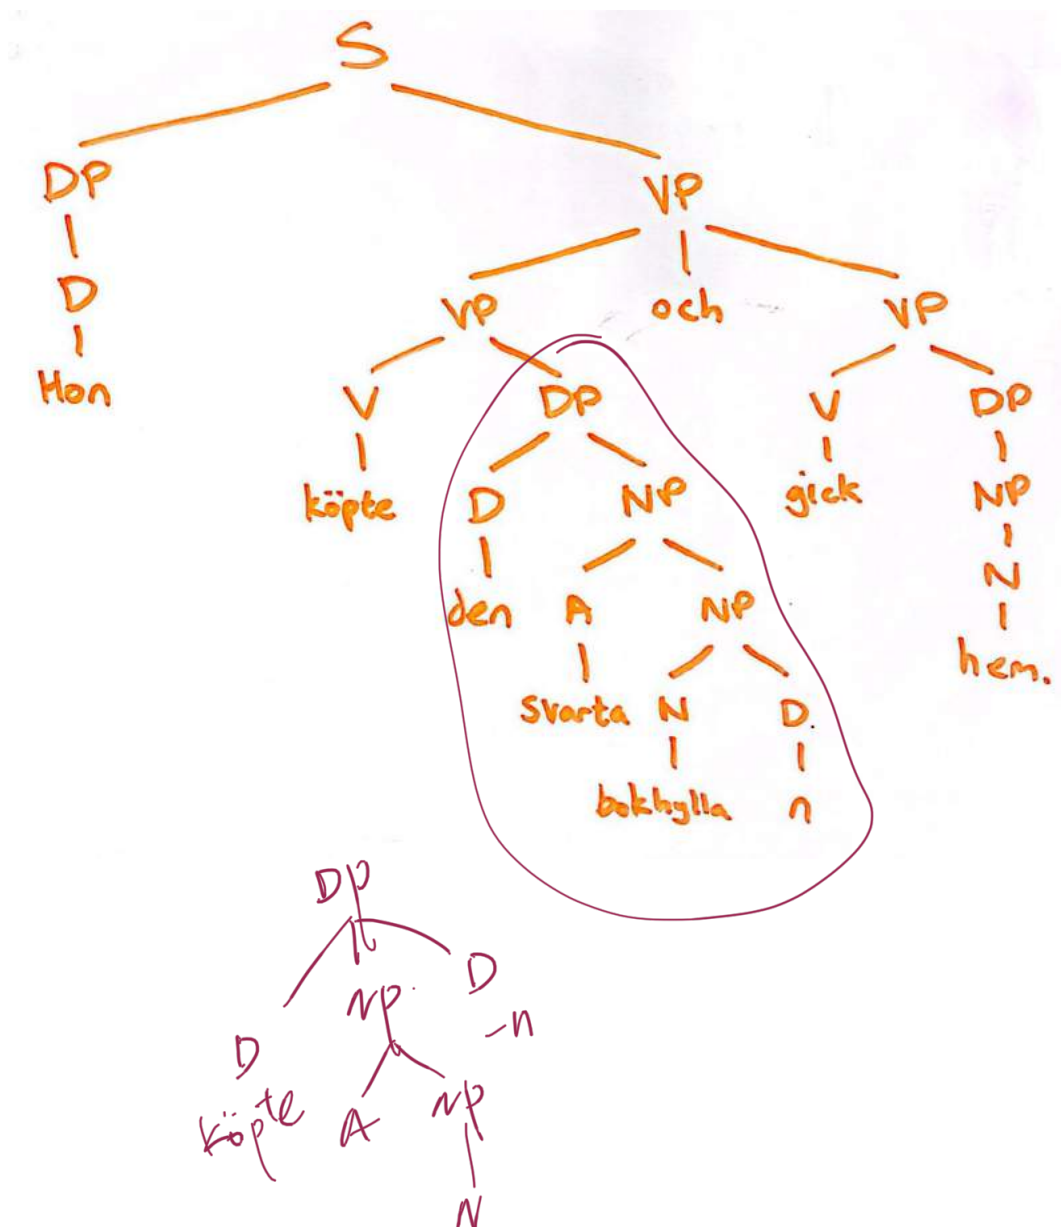 S
DP VP
D VP och VP
Hon V DP V DP
köpte D NP gick NP
den A NP N
svarta N D. hem.
bokhylla n
DP
NP. D
D -n
köpte A NP
N